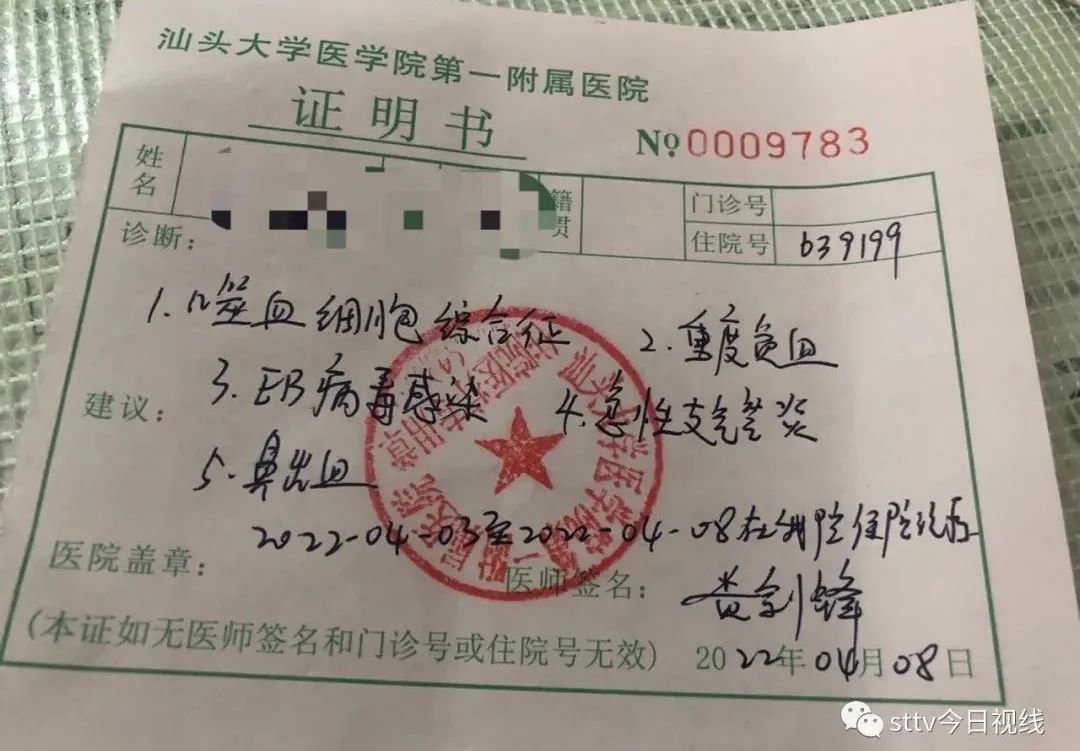 汕头大学医学院第一附属医院
证明书
№0009783
姓名
籍贯
门诊号
住院号 639199
诊断：
1.噬血细胞综合征 2.重度贫血
3.EB病毒感染 4.急性支气管炎
建议：
5.鼻出血
2022-04-03至2022-04-08在我院住院治疗
医院盖章：
医师签名：
(本证如无医师签名和门诊号或住院号无效) 2022年04月08日
sttv今日视线